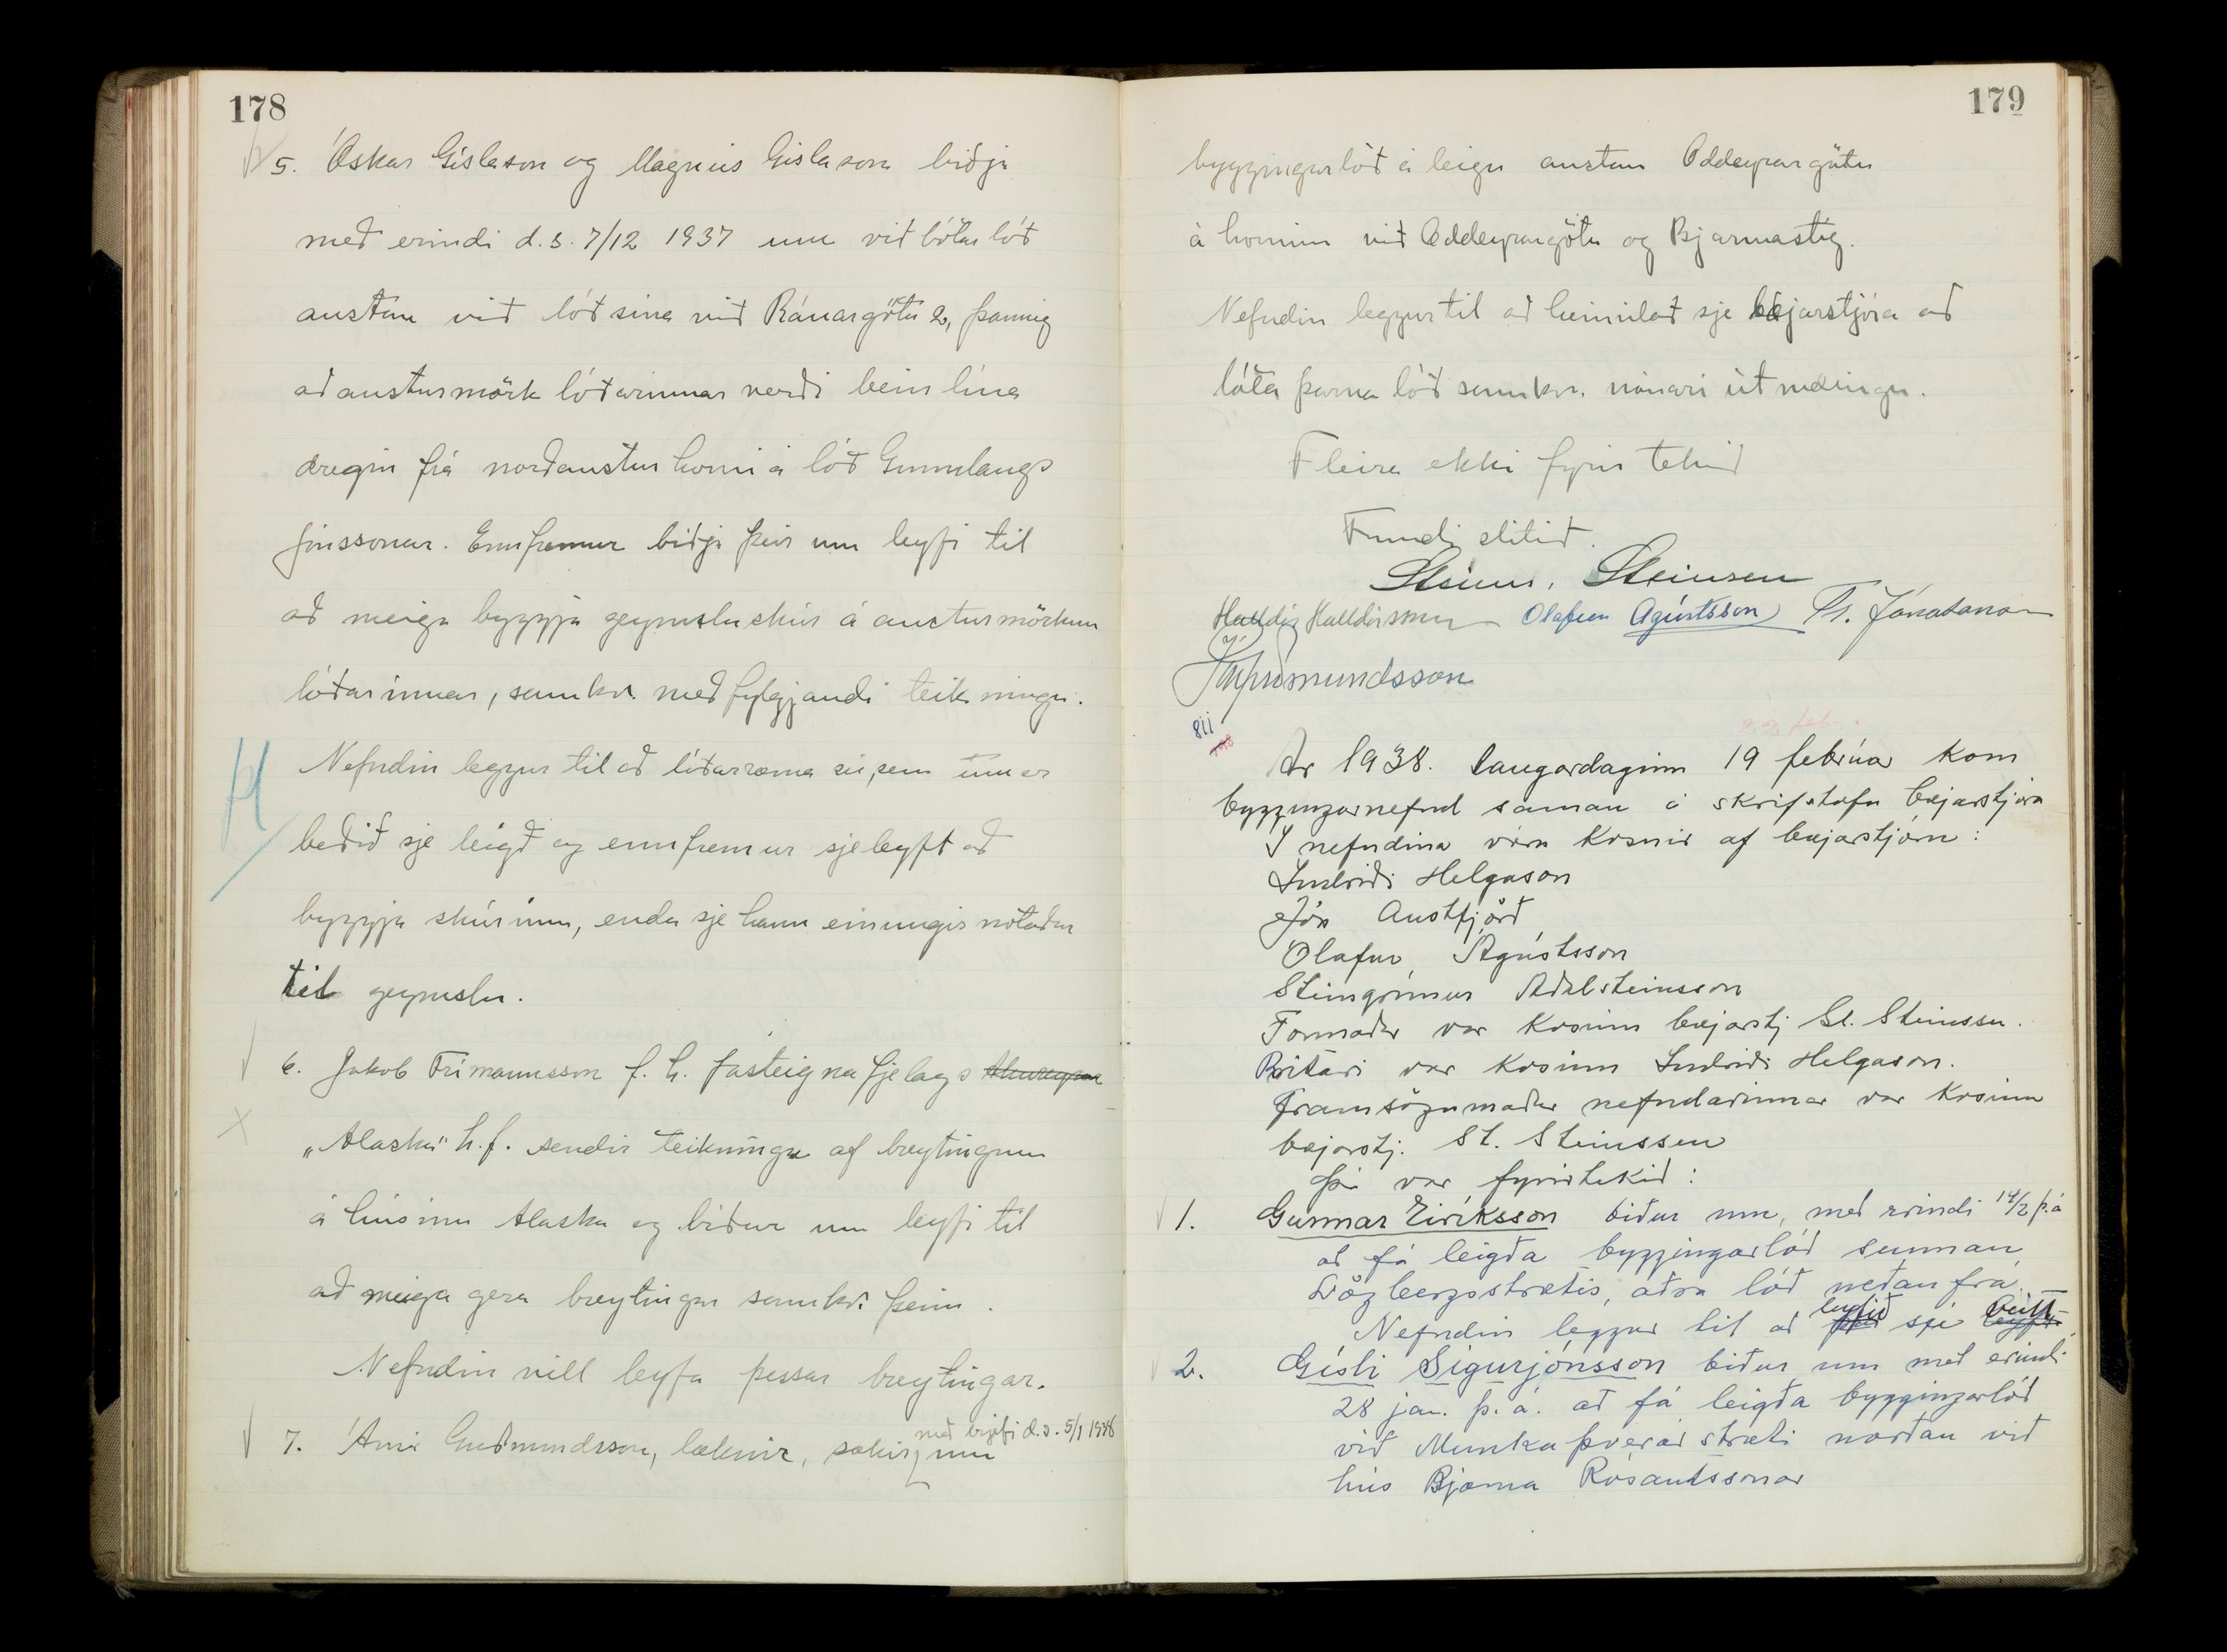 178
5. Óskar Gíslason og Magnús Gíslason biðja
með erindi d.s. 7/12 1937 um viðbótar lóð
austan við lóð sína við Ránargötu 2, þannig
að austurmörk lóðarinnar verði bein lína
dregin frá norðaustur horni á lóð Gunnlaugs
Jónssonar. Ennfremur biðja þeir um leyfi til
að meiga byggja geymsluskúr á austurmörkum
lóðarinnar, samkv. meðfylgjandi teikningu.
Nefndin leggur til að lóðarræma sú, sem um er
beðið sje leigð og ennfremur sje leyft að
byggja skúrinn, enda sje hann einungis notaður
til geymslu.
6. Jakob Frímannsson f. h. fasteignafjelags Akureyrar
„Alaska" h.f. sendir teikningu af breytingum
á húsinu Alaska og biður um leyfi til
að meiga gera breytingar samkv. þeim.
Nefndin vill leyfa þessar breytingar.
með brjefi d.s. 5/1 1938
7. Árni Guðmundsson, læknir, sækir um
179
byggingarlóð á leigu austan Oddeyrargötu
á horninu við Oddeyrargötu og Bjarmastíg.
Nefndin leggur til að heimilað sje bæjarstjóra að
láta þarna lóð samkv. nánari útmælingu.
Fleira ekki fyrir tekið
Fundi slitið.
Steinn Steinsen
Halldór Halldórsson Olafur Agústsson Tr. Jónatansson
811
22 febr.
Ár 1938. laugardaginn 19 febrúar kom
byggingarnefnd saman á skrifstofu bæjarstjóra
Í nefndina vóru kosnir af bæjarstjórn:
Indriði Helgason
Jón Austfjörð
Ólafur Ágústsson
Steingrímur Aðalsteinsson
Formaður var kosinn bæjarstj St. Steinssen.
Ritari var kosinn Indriði Helgason.
Framsögumaður nefndarinnar var kosinn
bæjarstj. St. Steinssen
Þá var fyrirtekið:
1. Gunnar Eiríksson biður um, með erindi 14/2 þ.á
að fá leigða byggingarlóð sunnan
Lögbergsstrætis, aðra lóð neðan frá.
Nefndin leggur til að leyfið sje veitt
2. Gísli Sigurjónsson biður um með erindi
28 jan. þ.á. að fá leigða byggingarlóð
við Munkaþverárstræti norðan við
hús Bjarna Rósantssonar